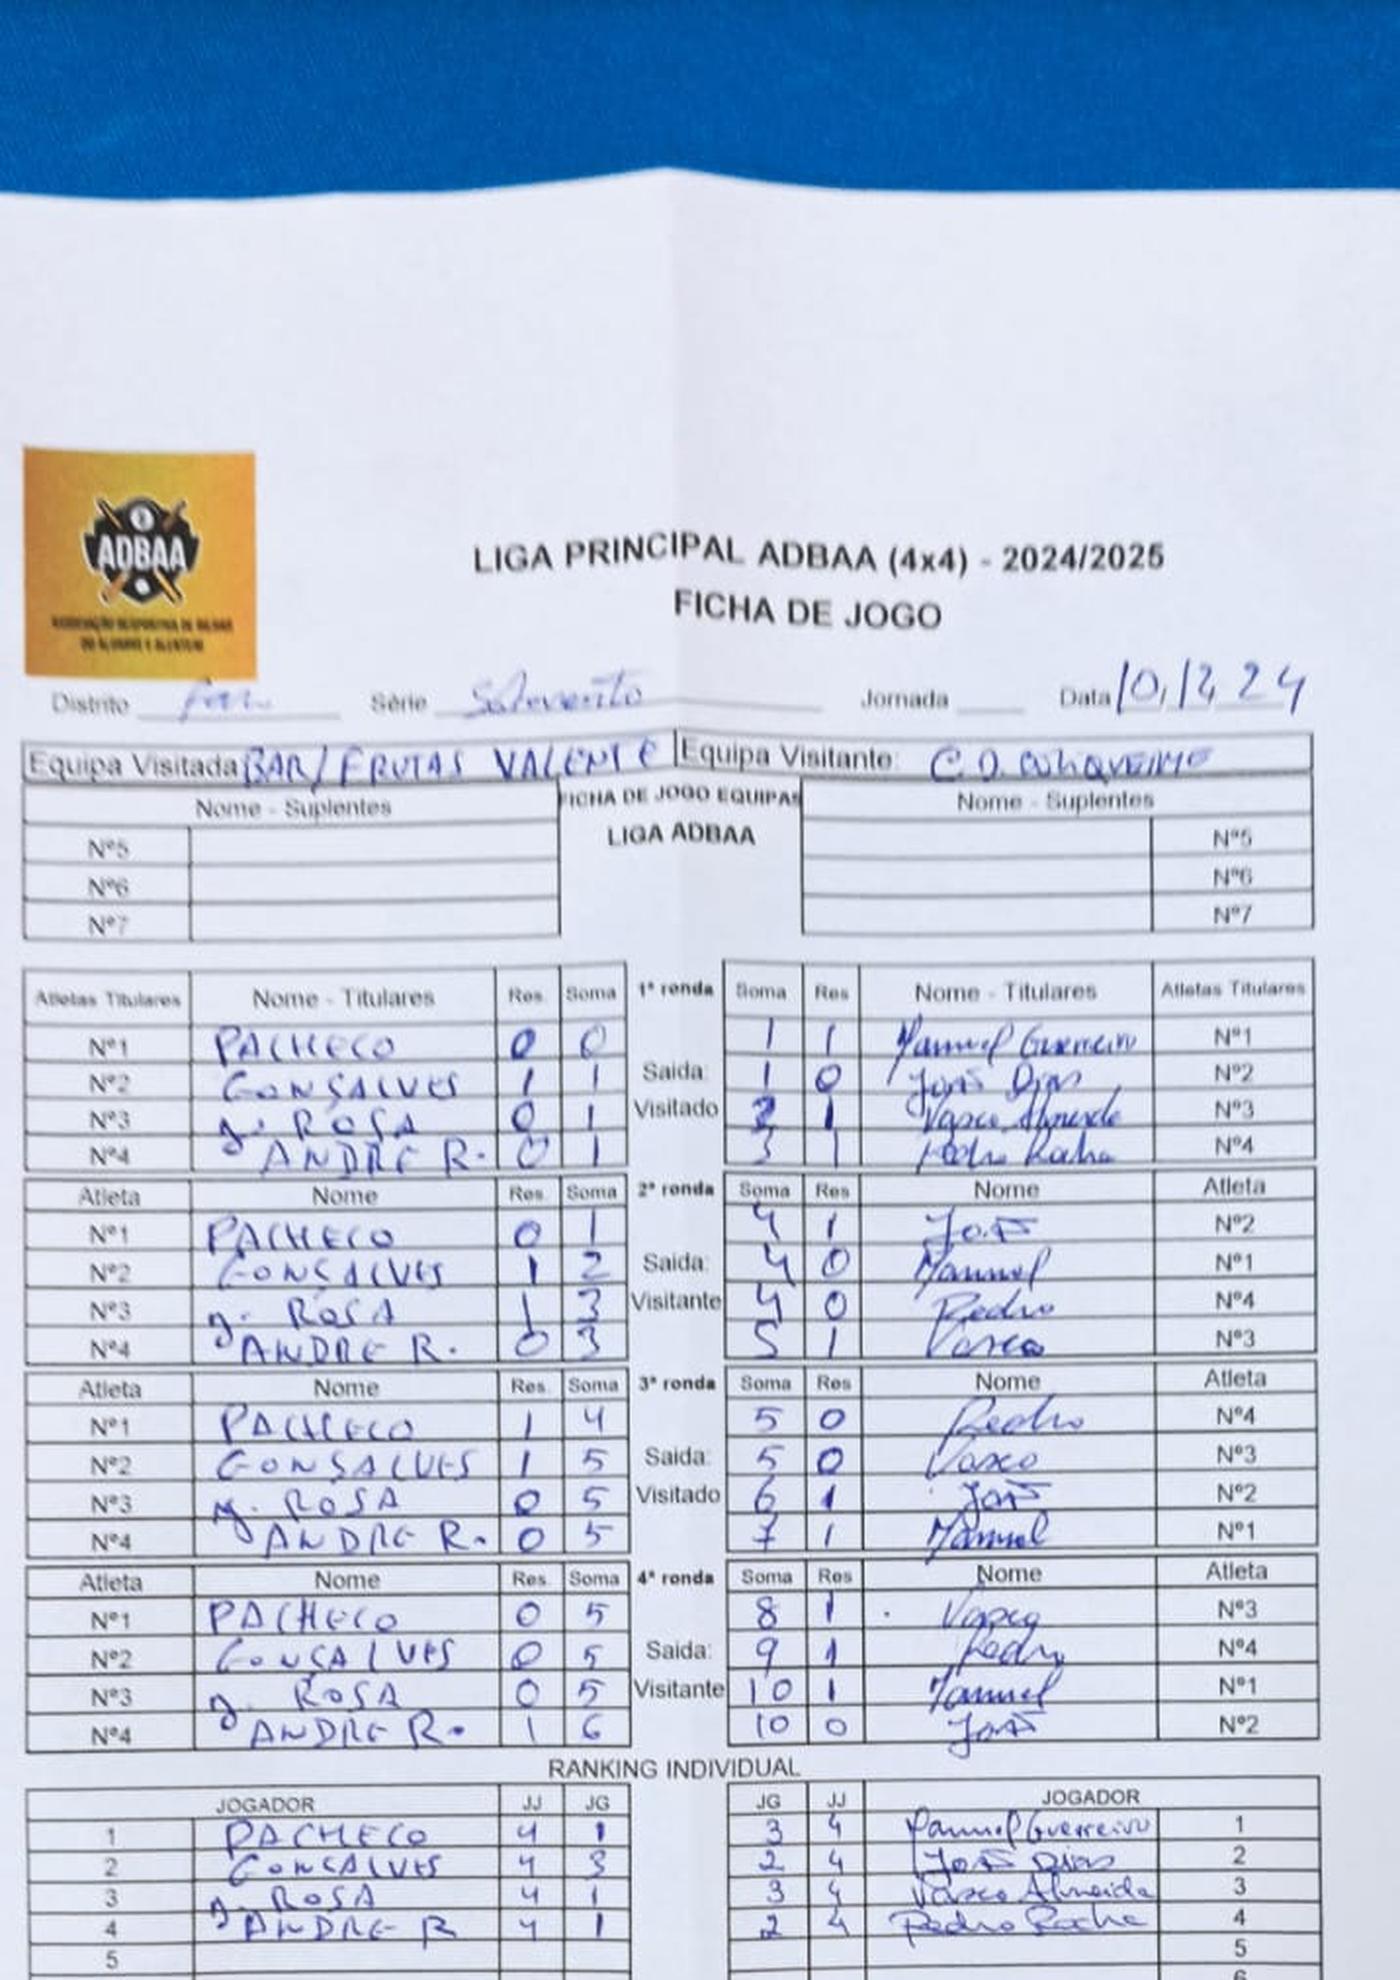 ADBAA
ASSOCIAÇÃO DESPORTIVA DE BILHAR
DO ALGARVE E ALENTEJO
LIGA PRINCIPAL ADBAA (4x4) - 2024/2025
FICHA DE JOGO
Distrito Faro Série Sotavento Jornada Data 10/12 24
Equipa Visitada BAR/FRUTAS VALENTE Equipa Visitante: C.D. BOLIQUEIME
Nome - Suplentes FICHA DE JOGO EQUIPAS Nome - Suplentes
LIGA ADBAA
Nº5 Nº5
Nº6 Nº6
Nº7 Nº7
Atletas Titulares Nome - Titulares Res. Soma 1ª ronda Soma Res Nome - Titulares Atletas Titulares
Nº1 PACHECO 0 0 1 1 Manuel Guerreiro Nº1
Nº2 GONSALVES 1 1 Saida: 1 0 João Dias Nº2
Nº3 J. ROSA 0 1 Visitado 2 1 Vasco Almeida Nº3
Nº4 ANDRE R. 0 1 3 1 Pedro Rocha Nº4
Atleta Nome Res. Soma 2ª ronda Soma Res Nome Atleta
Nº1 PACHECO 0 1 4 1 João Nº2
Nº2 GONSALVES 1 2 Saida: 4 0 Manuel Nº1
Nº3 J. ROSA 1 3 Visitante 4 0 Pedro Nº4
Nº4 ANDRE R. 0 3 5 1 Vasco Nº3
Atleta Nome Res. Soma 3ª ronda Soma Res Nome Atleta
Nº1 PACHECO 1 4 5 0 Pedro Nº4
Nº2 GONSALVES 1 5 Saida: 5 0 Vasco Nº3
Nº3 J. ROSA 0 5 Visitado 6 1 João Nº2
Nº4 ANDRE R. 0 5 7 1 Manuel Nº1
Atleta Nome Res. Soma 4ª ronda Soma Res Nome Atleta
Nº1 PACHECO 0 5 8 1 Vasco Nº3
Nº2 GONSALVES 0 5 Saida: 9 1 Pedro Nº4
Nº3 J. ROSA 0 5 Visitante 10 1 Manuel Nº1
Nº4 ANDRE R. 1 6 10 0 João Nº2
RANKING INDIVIDUAL
JOGADOR JJ JG JG JJ JOGADOR
1 PACHECO 4 1 3 4 Manuel Guerreiro 1
2 GONSALVES 4 3 2 4 João Dias 2
3 J. ROSA 4 1 3 4 Vasco Almeida 3
4 ANDRE R 4 1 2 4 Pedro Rocha 4
5 5
6